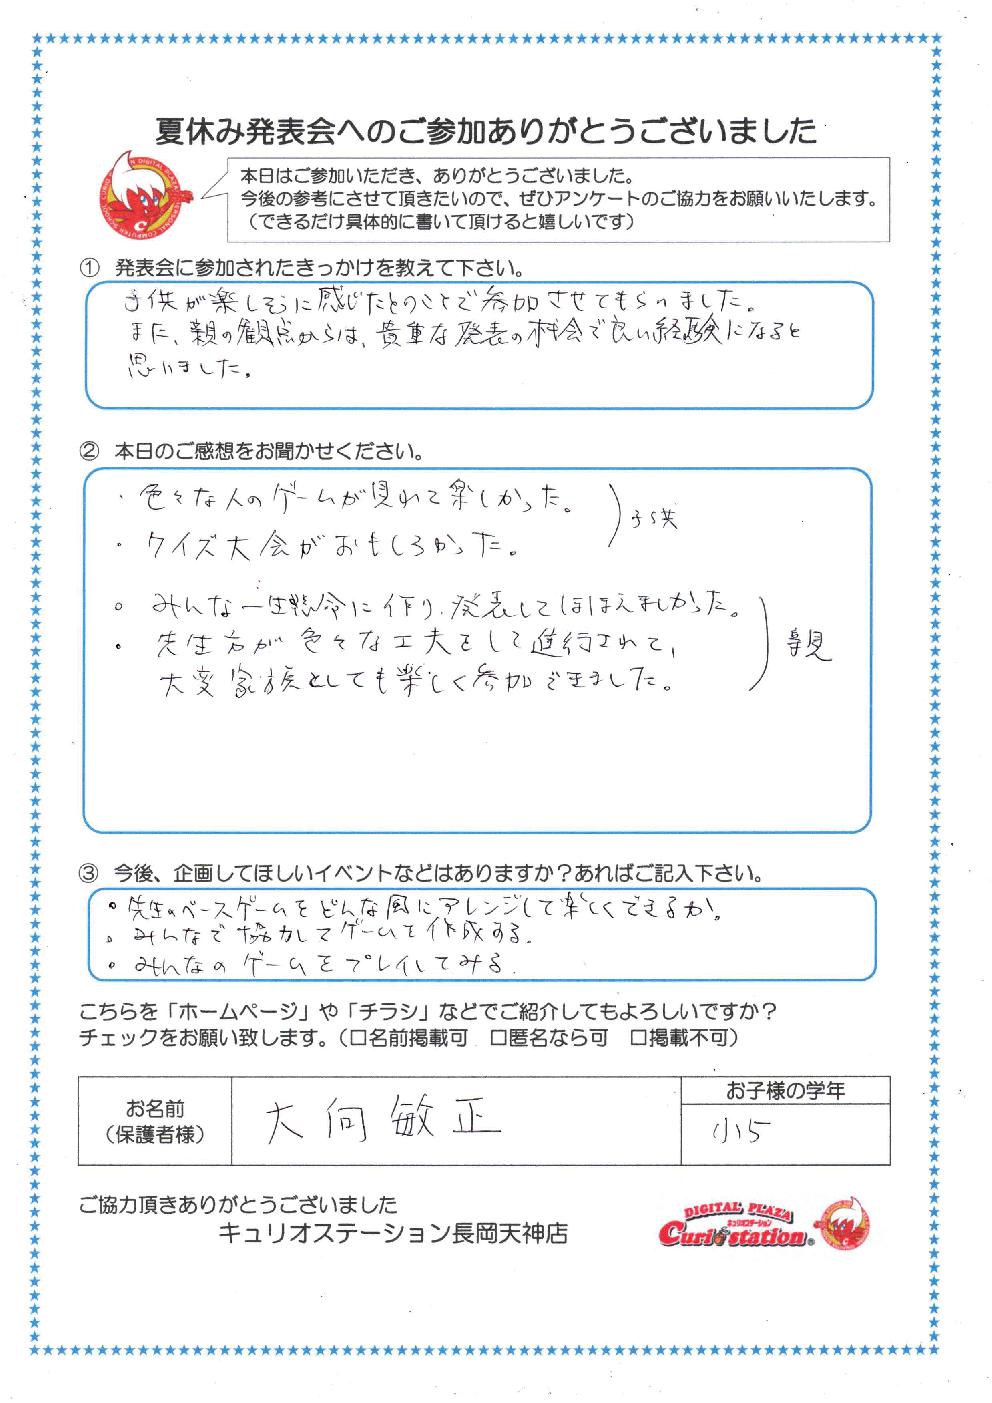 夏休み発表会へのご参加ありがとうございました
本日はご参加いただき、ありがとうございました。
今後の参考にさせて頂きたいので、ぜひアンケートのご協力をお願いいたします。
（できるだけ具体的に書いて頂けると嬉しいです）
① 発表会に参加されたきっかけを教えて下さい。
子供が楽しそうに感じたとのことで参加させてもらいました。
また、親の観点からは、貴重な発表の機会で良い経験になると
思いました。
② 本日のご感想をお聞かせください。
・色々な人のゲームが見れて楽しかった。
・クイズ大会がおもしろかった。
子供
・みんな一生懸命に作り、発表してほほえましかった。
・先生方が色々な工夫をして進行されて、
大変家族としても楽しく参加できました。
親
③ 今後、企画してほしいイベントなどはありますか？あればご記入下さい。
・先生のベースゲームをどんな風にアレンジして楽しくできるか。
・みんなで協力してゲームを作成する。
・みんなのゲームをプレイしてみる。
こちらを「ホームページ」や「チラシ」などでご紹介してもよろしいですか？
チェックをお願い致します。（□名前掲載可 □匿名なら可 □掲載不可）
お名前
（保護者様）
大向敏正
お子様の学年
小5
ご協力頂きありがとうございました
キュリオステーション長岡天神店
DIGITAL PLAZA
キュリオステーション
Curio station